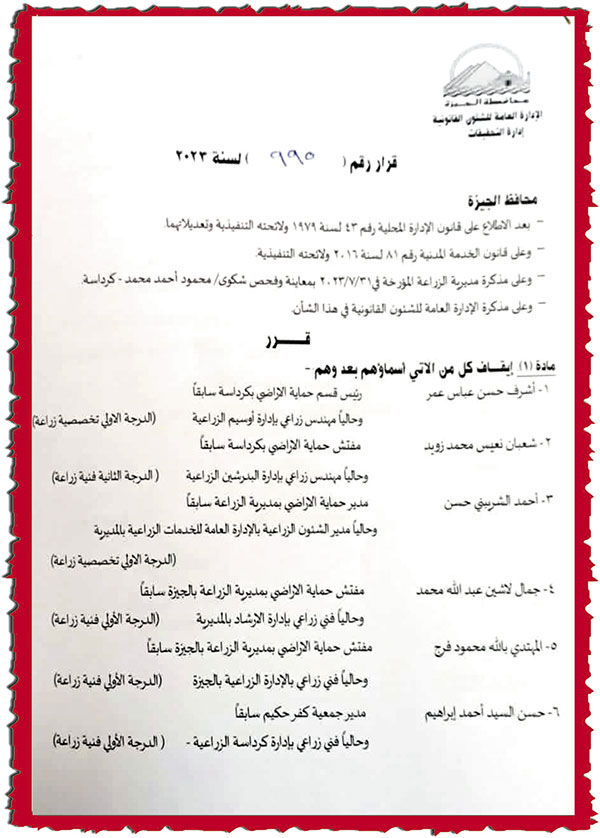 محافظة الجيزة
الإدارة العامة للشئون القانونية
إدارة التحقيقات
قرار رقم ( ٩٩٥ ) لسنة ٢٠٢٣
محافظ الجيزة
- بعد الاطلاع على قانون الإدارة المحلية رقم ٤٣ لسنة ١٩٧٩ ولائحته التنفيذية وتعديلاتهما.
- وعلى قانون الخدمة المدنية رقم ٨١ لسنة ٢٠١٦ ولائحته التنفيذية.
- وعلى مذكرة مديرية الزراعة المؤرخة في ٢٠٢٣/٧/٣١ بمعاينة وفحص شكوى/ محمود أحمد محمد - كرداسة.
- وعلى مذكرة الإدارة العامة للشئون القانونية في هذا الشأن.
قــــرر
مادة (١) إيقاف كل من الاتي أسماؤهم بعد وهم -
١- أشرف حسن عباس عمر رئيس قسم حماية الاراضي بكرداسة سابقاً
وحالياً مهندس زراعي بإدارة أوسيم الزراعية (الدرجة الاولي تخصصية زراعة)
٢- شعبان نعيس محمد زويد مفتش حماية الاراضي بكرداسة سابقاً
وحالياً مهندس زراعي بإدارة البدرشين الزراعية ( الدرجة الثانية فنية زراعة)
٣- أحمد الشربيني حسن مدير حماية الاراضي بمديرية الزراعة سابقاً
وحالياً مدير الشئون الزراعية بالإدارة العامة للخدمات الزراعية بالمديرية
(الدرجة الاولي تخصصية زراعة)
٤- جمال لاشين عبد الله محمد مفتش حماية الاراضي بمديرية الزراعة بالجيزة سابقاً
وحالياً فني زراعي بإدارة الارشاد بالمديرية (الدرجة الأولي فنية زراعة)
٥- المهتدي بالله محمود فرج مفتش حماية الاراضي بمديرية الزراعة بالجيزة سابقاً
وحالياً فني زراعي بالإدارة الزراعية بالجيزة (الدرجة الأولي فنية زراعة)
٦- حسن السيد أحمد إبراهيم مدير جمعية كفر حكيم سابقاً
وحالياً فني زراعي بإدارة كرداسة الزراعية - ( الدرجة الأولي فنية زراعة)